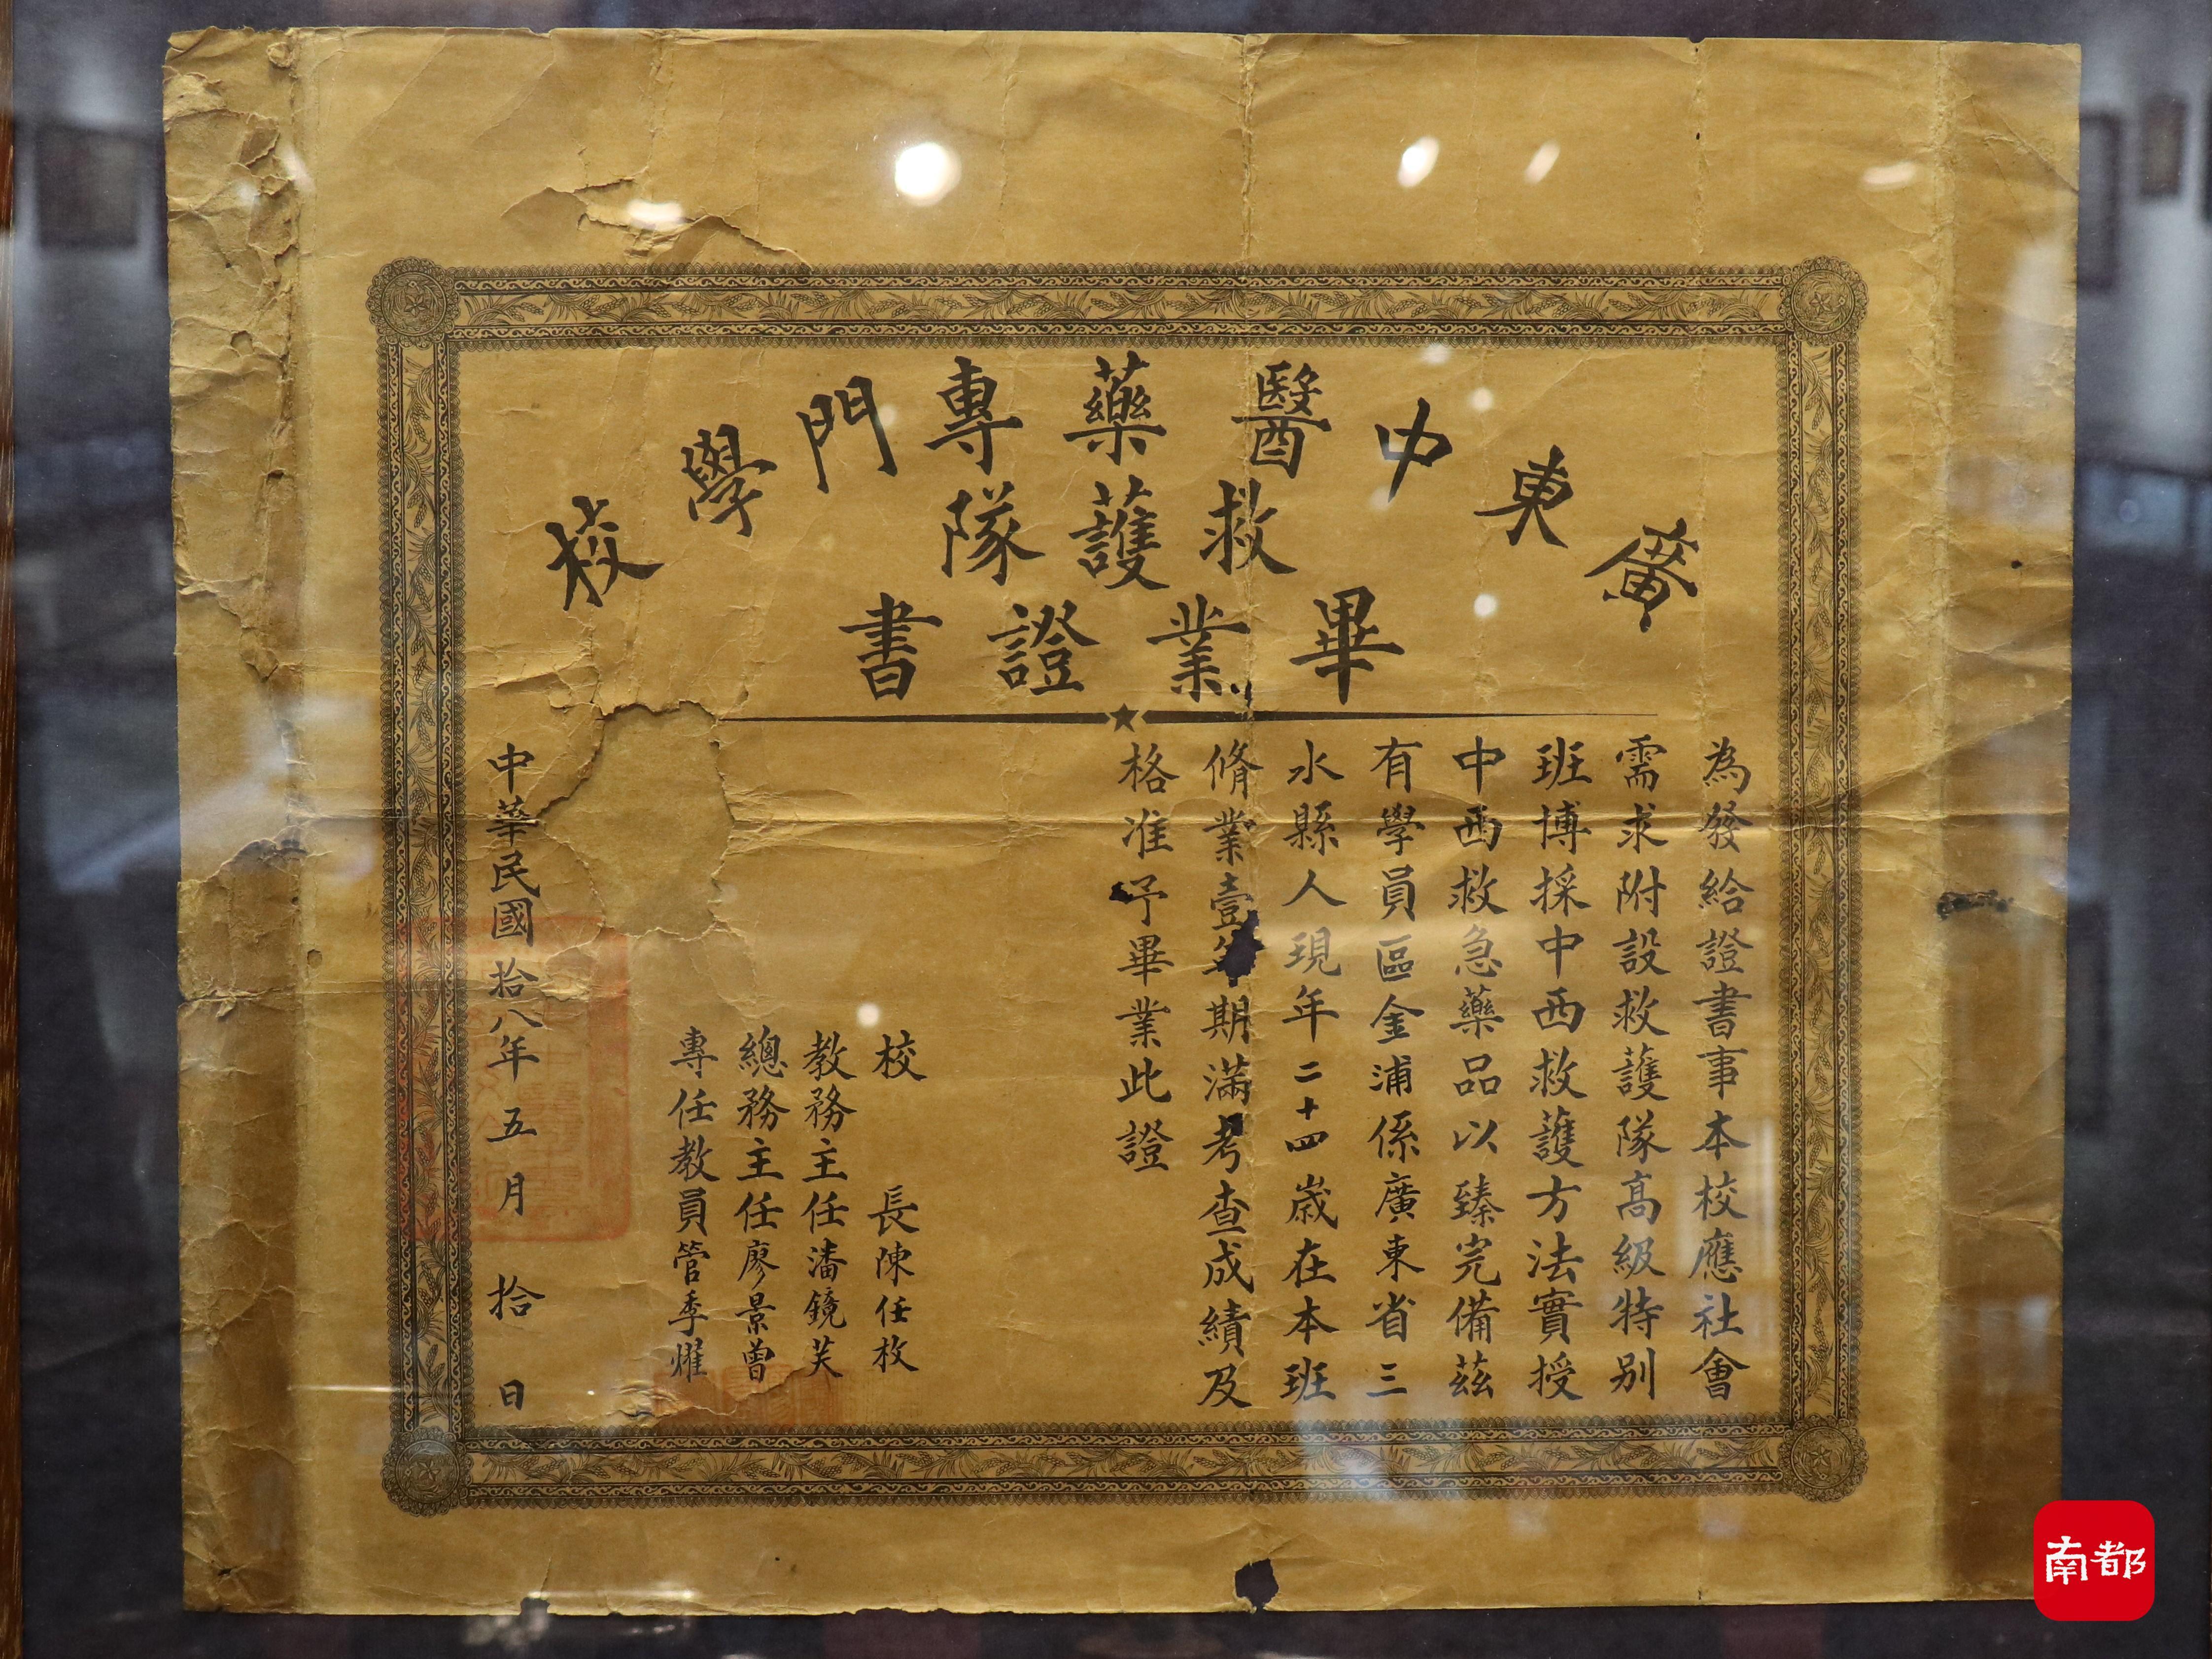 廣東中醫藥專門學校
救護隊
畢業證書
為發給證書事本校應社會
需求附設救護隊高級特別
班博採中西救護方法實授
中西救急藥品以臻完備茲
有學員區金浦係廣東省三
水縣人現年二十四歲在本班
脩業壹年期滿考查成績及
格准予畢業此證
校長陳任枚
教務主任潘鏡芙
總務主任廖景曾
專任教員管季燿
中華民國拾八年五月拾日
南都